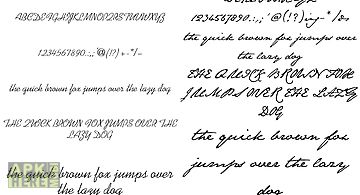 ABCDEFGHIJKLMNOPQRSTUVWXYZ
1234567890.:,;'@(!?)+-*/=
the quick brown fox jumps over the lazy dog
THE QUICK BROWN FOX JUMPS OVER THE
LAZY DOG
the quick brown fox jumps over
the lazy dog
1234567890.:,;'@(!?)+-*/=
the quick brown fox jumps over
the lazy dog
THE QUICK BROWN FOX
JUMPS OVER THE LAZY
DOG
the quick brown fox
jumps over the lazy
dog